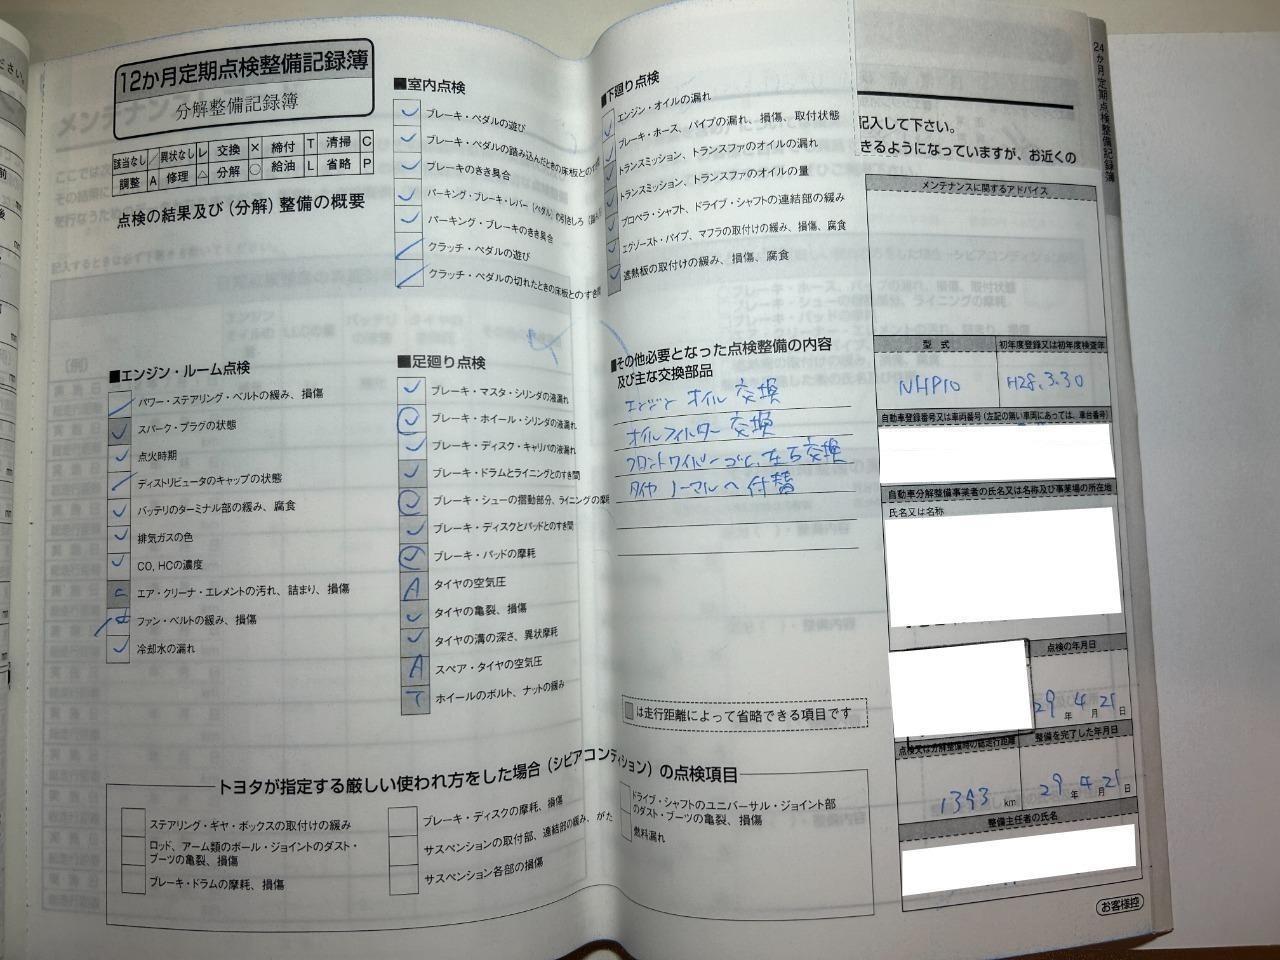 12か月定期点検整備記録簿
分解整備記録簿
該当なし ／ 異状なし レ 交換 × 締付 T 清掃 C
調整 A 修理 △ 分解 ○ 給油 L 省略 P
点検の結果及び（分解）整備の概要
■エンジン・ルーム点検
パワー・ステアリング・ベルトの緩み、損傷
スパーク・プラグの状態
点火時期
ディストリビュータのキャップの状態
バッテリのターミナル部の緩み、腐食
排気ガスの色
CO, HCの濃度
エア・クリーナ・エレメントの汚れ、詰まり、損傷
ファン・ベルトの緩み、損傷
冷却水の漏れ
■室内点検
ブレーキ・ペダルの遊び
ブレーキ・ペダルの踏み込んだときの床板とのすき間
ブレーキのきき具合
パーキング・ブレーキ・レバー（ペダル）の引きしろ
パーキング・ブレーキのきき具合
クラッチ・ペダルの遊び
クラッチ・ペダルの切れたときの床板とのすき間
■足廻り点検
ブレーキ・マスタ・シリンダの液漏れ
ブレーキ・ホイール・シリンダの液漏れ
ブレーキ・ディスク・キャリパの液漏れ
ブレーキ・ドラムとライニングとのすき間
ブレーキ・シューの摺動部分、ライニングの摩耗
ブレーキ・ディスクとパッドとのすき間
ブレーキ・パッドの摩耗
A タイヤの空気圧
タイヤの亀裂、損傷
タイヤの溝の深さ、異状摩耗
A スペア・タイヤの空気圧
T ホイールのボルト、ナットの緩み
■下廻り点検
エンジン・オイルの漏れ
ブレーキ・ホース、パイプの漏れ、損傷、取付状態
トランスミッション、トランスファのオイルの漏れ
トランスミッション、トランスファのオイルの量
プロペラ・シャフト、ドライブ・シャフトの連結部の緩み
エグゾースト・パイプ、マフラの取付けの緩み、損傷、腐食
遮熱板の取付けの緩み、損傷、腐食
■その他必要となった点検整備の内容
及び主な交換部品
エンジン オイル 交換
オイルフィルター 交換
フロントワイパーゴム 左右交換
タイヤ ノーマルへ 付替
は走行距離によって省略できる項目です
トヨタが指定する厳しい使われ方をした場合（シビアコンディション）の点検項目
ステアリング・ギヤ・ボックスの取付けの緩み
ロッド、アーム類のボール・ジョイントのダスト・
ブーツの亀裂、損傷
ブレーキ・ドラムの摩耗、損傷
ブレーキ・ディスクの摩耗、損傷
サスペンションの取付部、連結部の緩み、がた
サスペンション各部の損傷
ドライブ・シャフトのユニバーサル・ジョイント部
のダスト・ブーツの亀裂、損傷
燃料漏れ
記入して下さい。
きるようになっていますが、お近くの
メンテナンスに関するアドバイス
型 式
NHP10
初年度登録又は初年度検査年
H28.3.30
自動車登録番号又は車両番号（左記の無い車両にあっては、車台番号）
自動車分解整備事業者の氏名又は名称及び事業場の所在地
氏名又は名称
点検の年月日
29年 4月 21日
点検又は分解整備時の総走行距離
1393 km
整備を完了した年月日
29年 4月 21日
整備主任者の氏名
お客様控
24か月定期点検整備記録簿